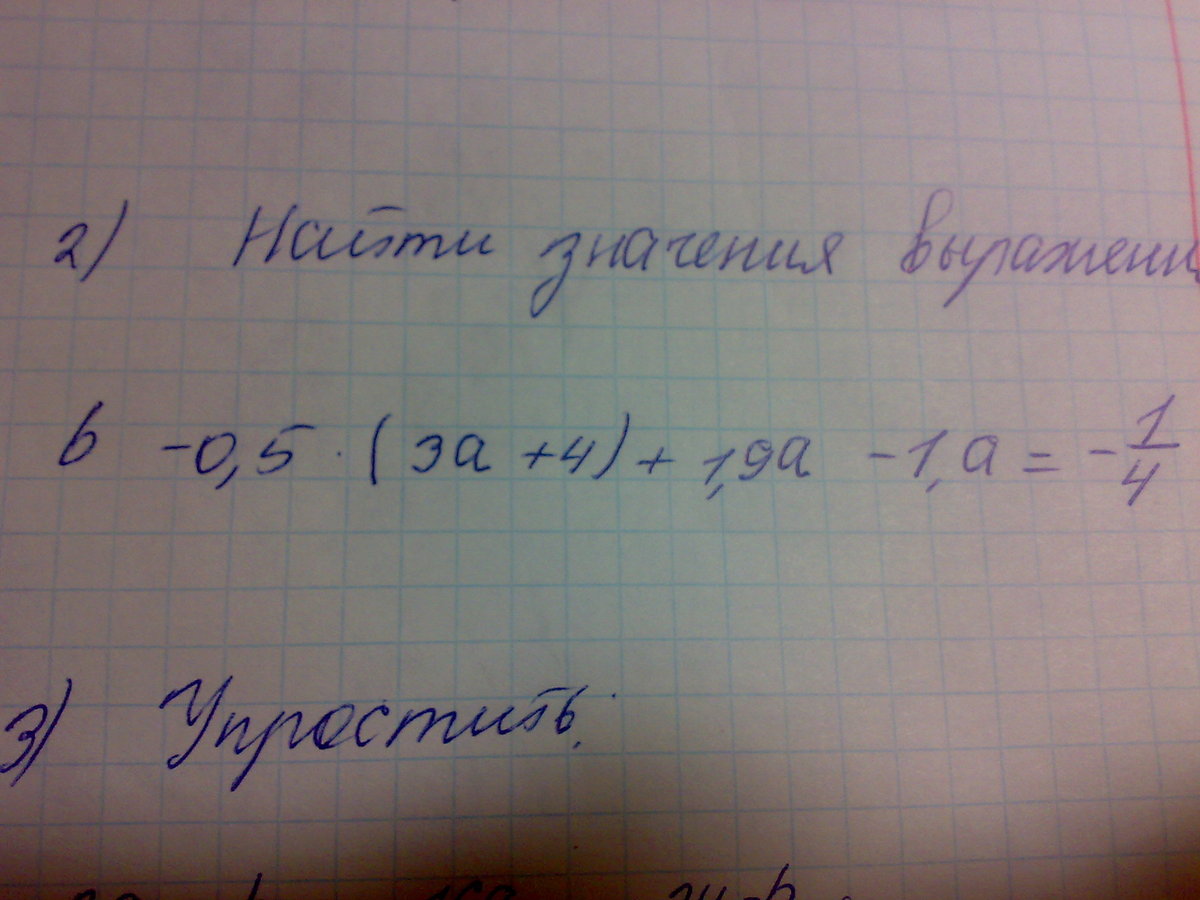 2) Найти значения выражени
b -0,5 · (3a + 4) + 1,9a - 1, a = - 1/4
3) Упростить: